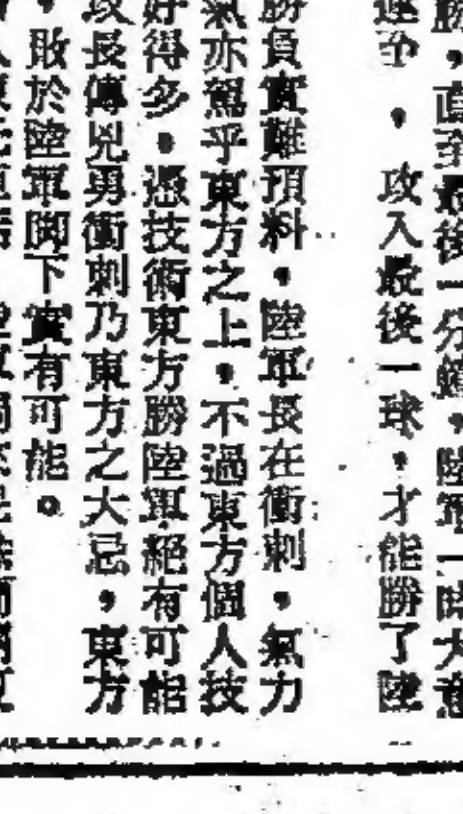 勝,直至最後一分鐘,陸軍一時大意
遠至,攻入最後一球,才能勝了陸
勝負實難預料,陸軍長在衝刺,氣力
氣亦駕乎東方之上,不過東方個人技
好得多,憑技術東方勝陸軍絕有可能
攻長傳兇勇衝刺乃東方之大忌,東方
,敗於陸軍脚下實有可能。